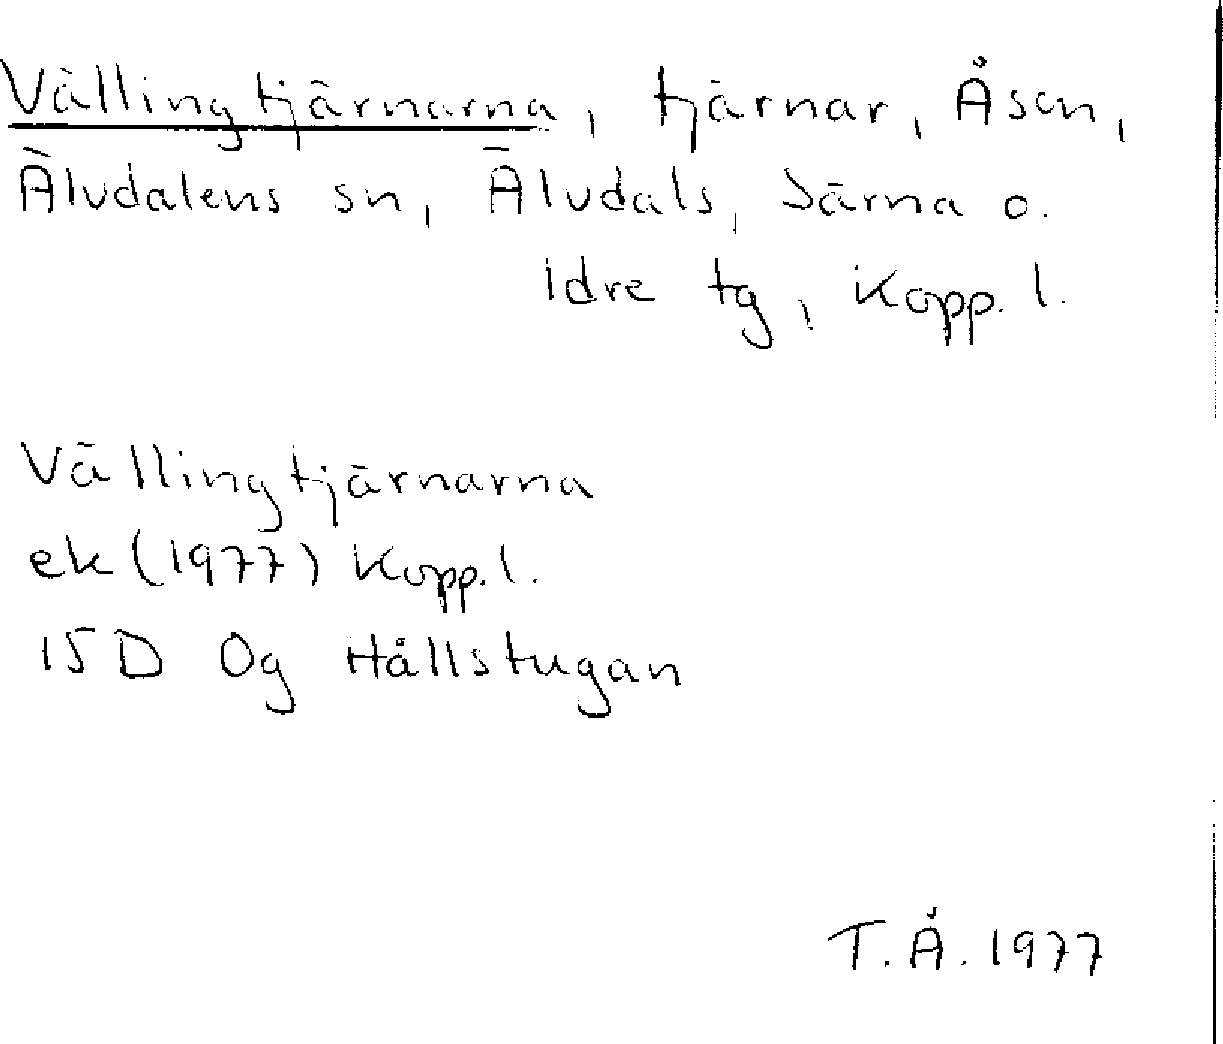 Vällingtjärnarna, tjärnar, Åsen,
Älvdalens sn, Älvdals, Särna o.
Idre tg, Kopp. l.
Vällingtjärnarna
ek (1977) Kopp. l.
15D 0g Hållstugan
T.Å. 1977